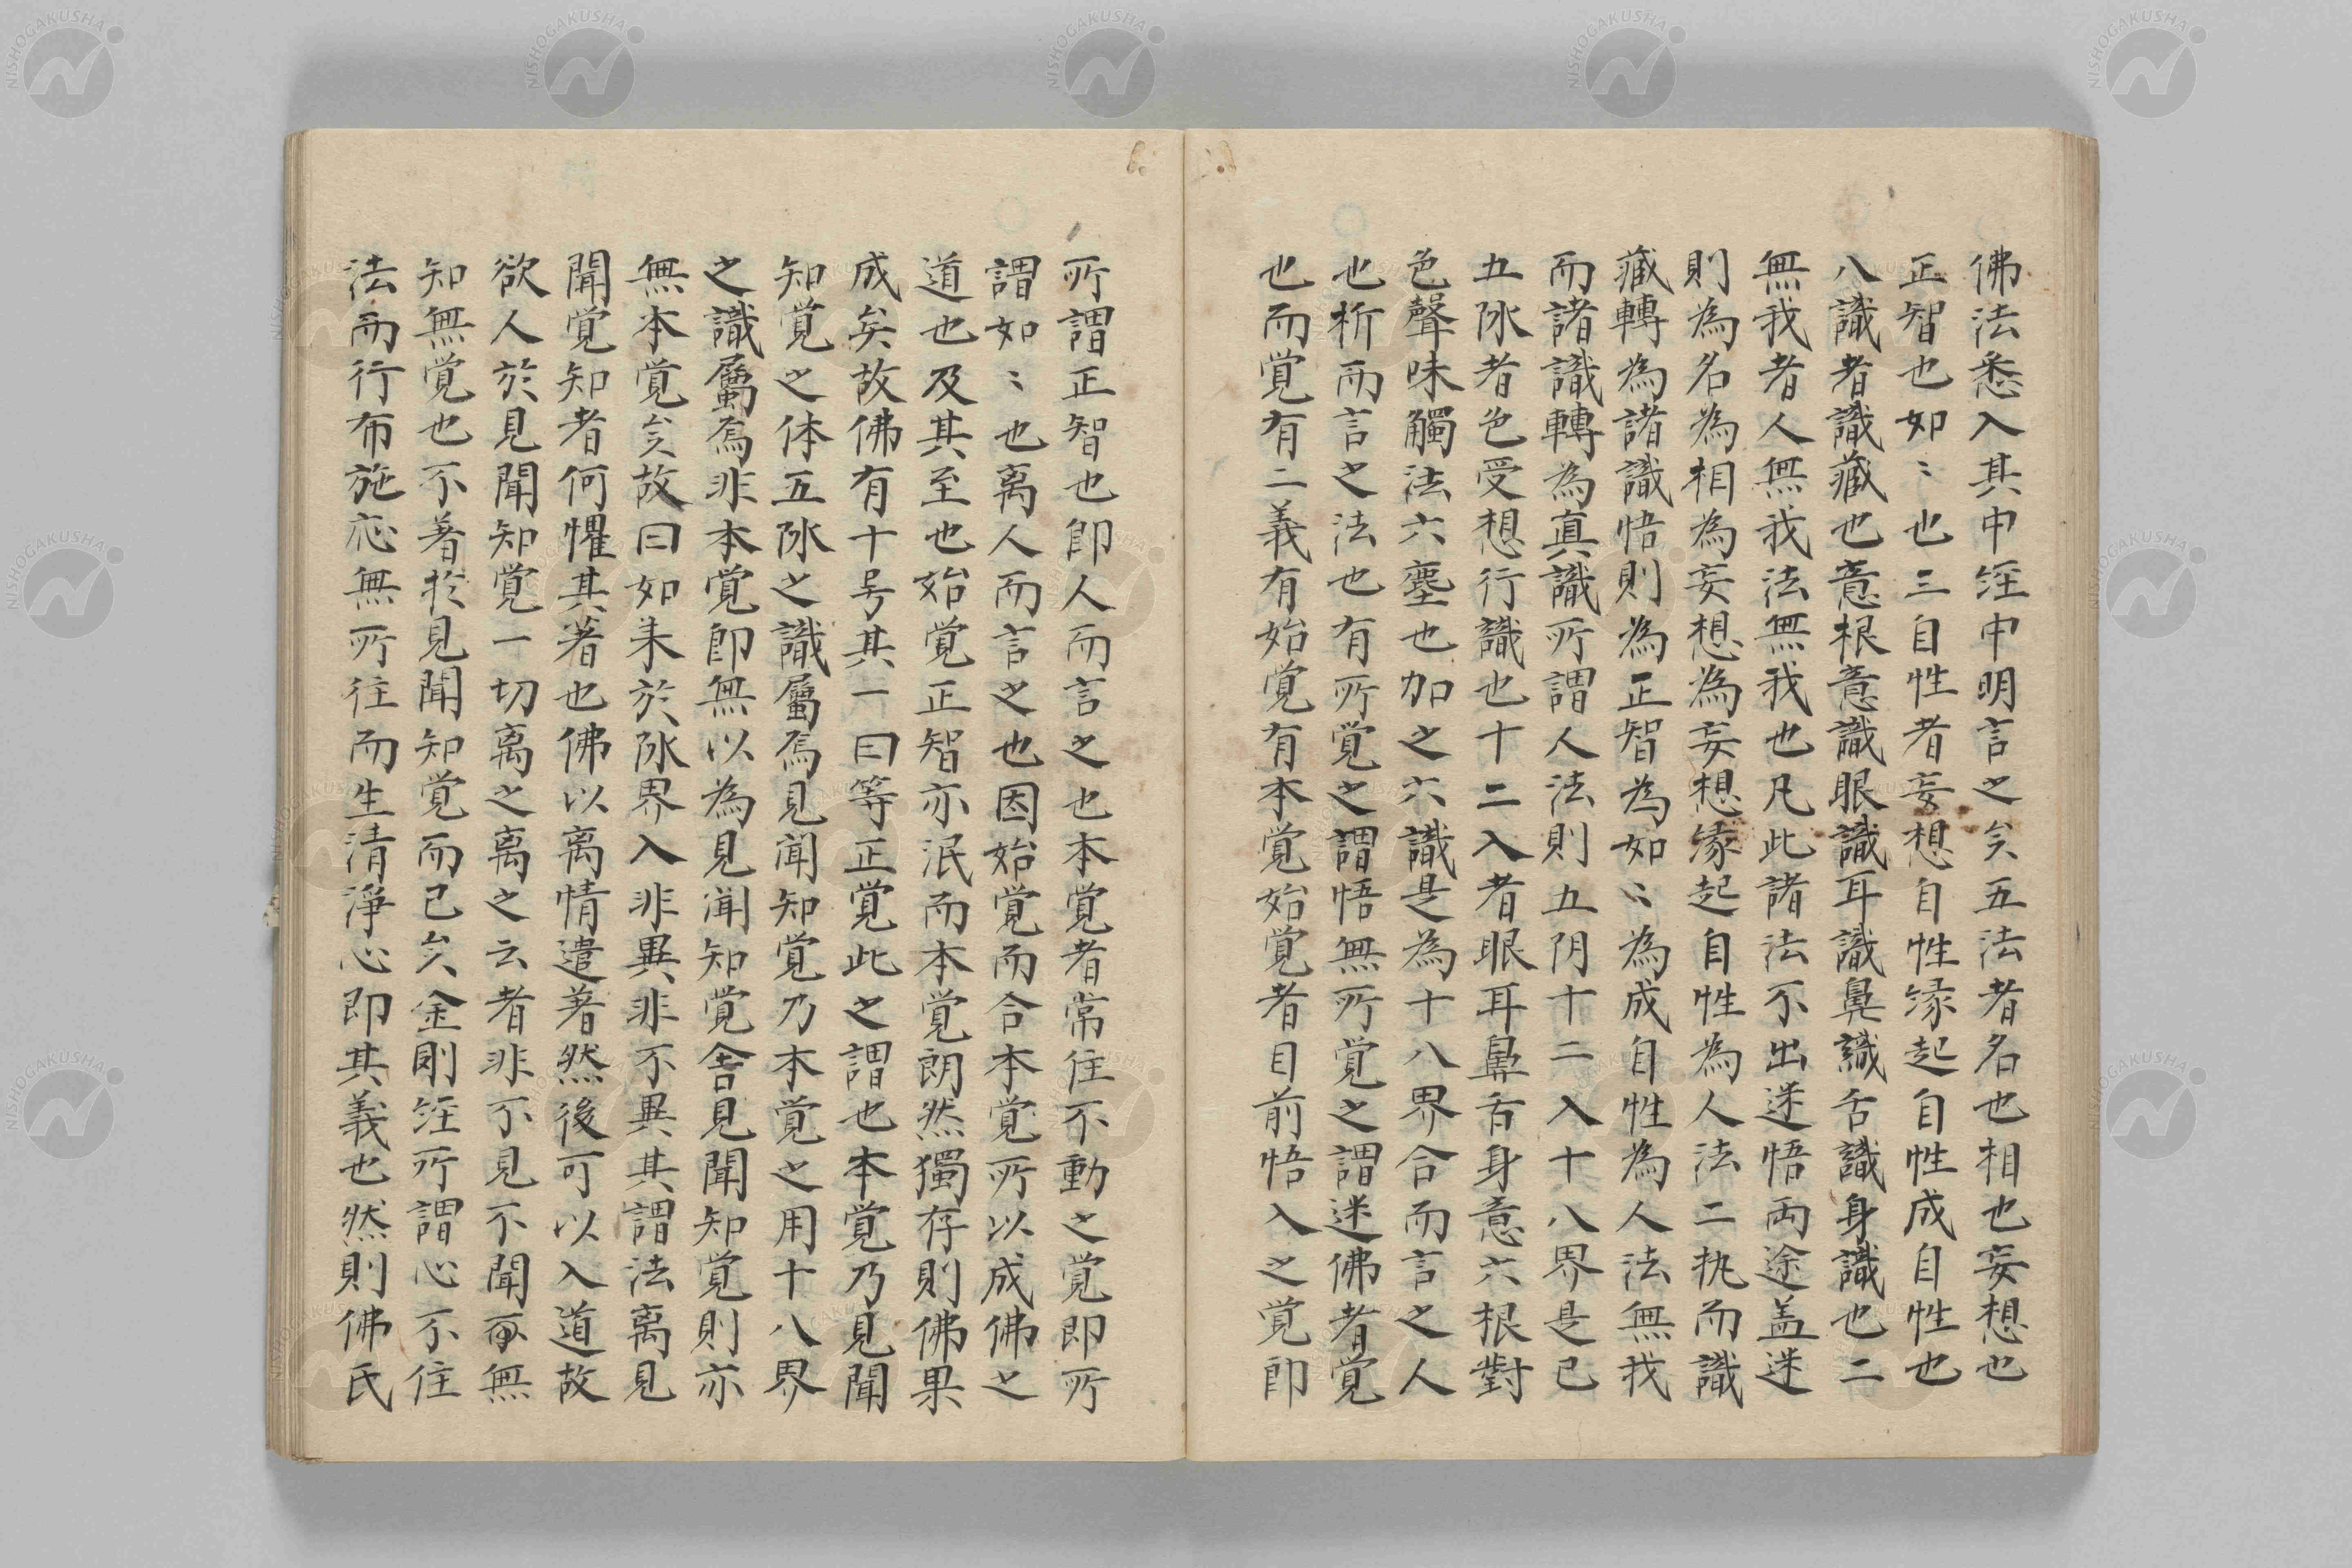 佛法悉入其中経中明言之矣五法者名也相也妄想也
正智也如〻也三自性者妄想自性縁起自性成自性也
八識者識蔵也意根意識眼識耳識鼻識舌識身識也二
無我者人無我法無我也凡此諸法不出迷悟両途盖迷
則為名為相為妄想為妄想縁起自性為人法二执而識
蔵轉為諸識悟則為正智為如〻為成自性為人法無我
而諸識轉為真識所謂人法則五阴十二入十八界是已
五阥者色受想行識也十二入者眼耳鼻舌身意六根對
色聲味觸法六塵也加之六識是為十八界合而言之人
也析而言之法也有所覚之謂悟無所覚之謂迷佛者覚
也而覚有二義有始覚有本覚始覚者目前悟入之覚即
所謂正智也即人而言之也本覚者常住不動之覚即所
謂如〻也离人而言之也因始覚而合本覚所以成佛之
道也及其至也始覚正智亦泯而本覚朗然獨存則佛果
成矣故佛有十号其一曰等正覚此之謂也本覚乃見聞
知覚之体五阥之識屬焉見闻知覚乃本覚之用十八界
之識屬焉非本覚即無以為見闻知覚舍見聞知覚則亦
無本覚矣故曰如来於阥界入非異非不異其謂法离見
聞覚知者何懼其著也佛以离情遣著然後可以入道故
欲人於見聞知覚一切离之离之云者非不見不聞無
知無覚也不著於見聞知覚而已矣金剛経所謂心不住
法而行布施应無所住而生清淨心即其義也然則佛氏
NISHOGAKUSHA